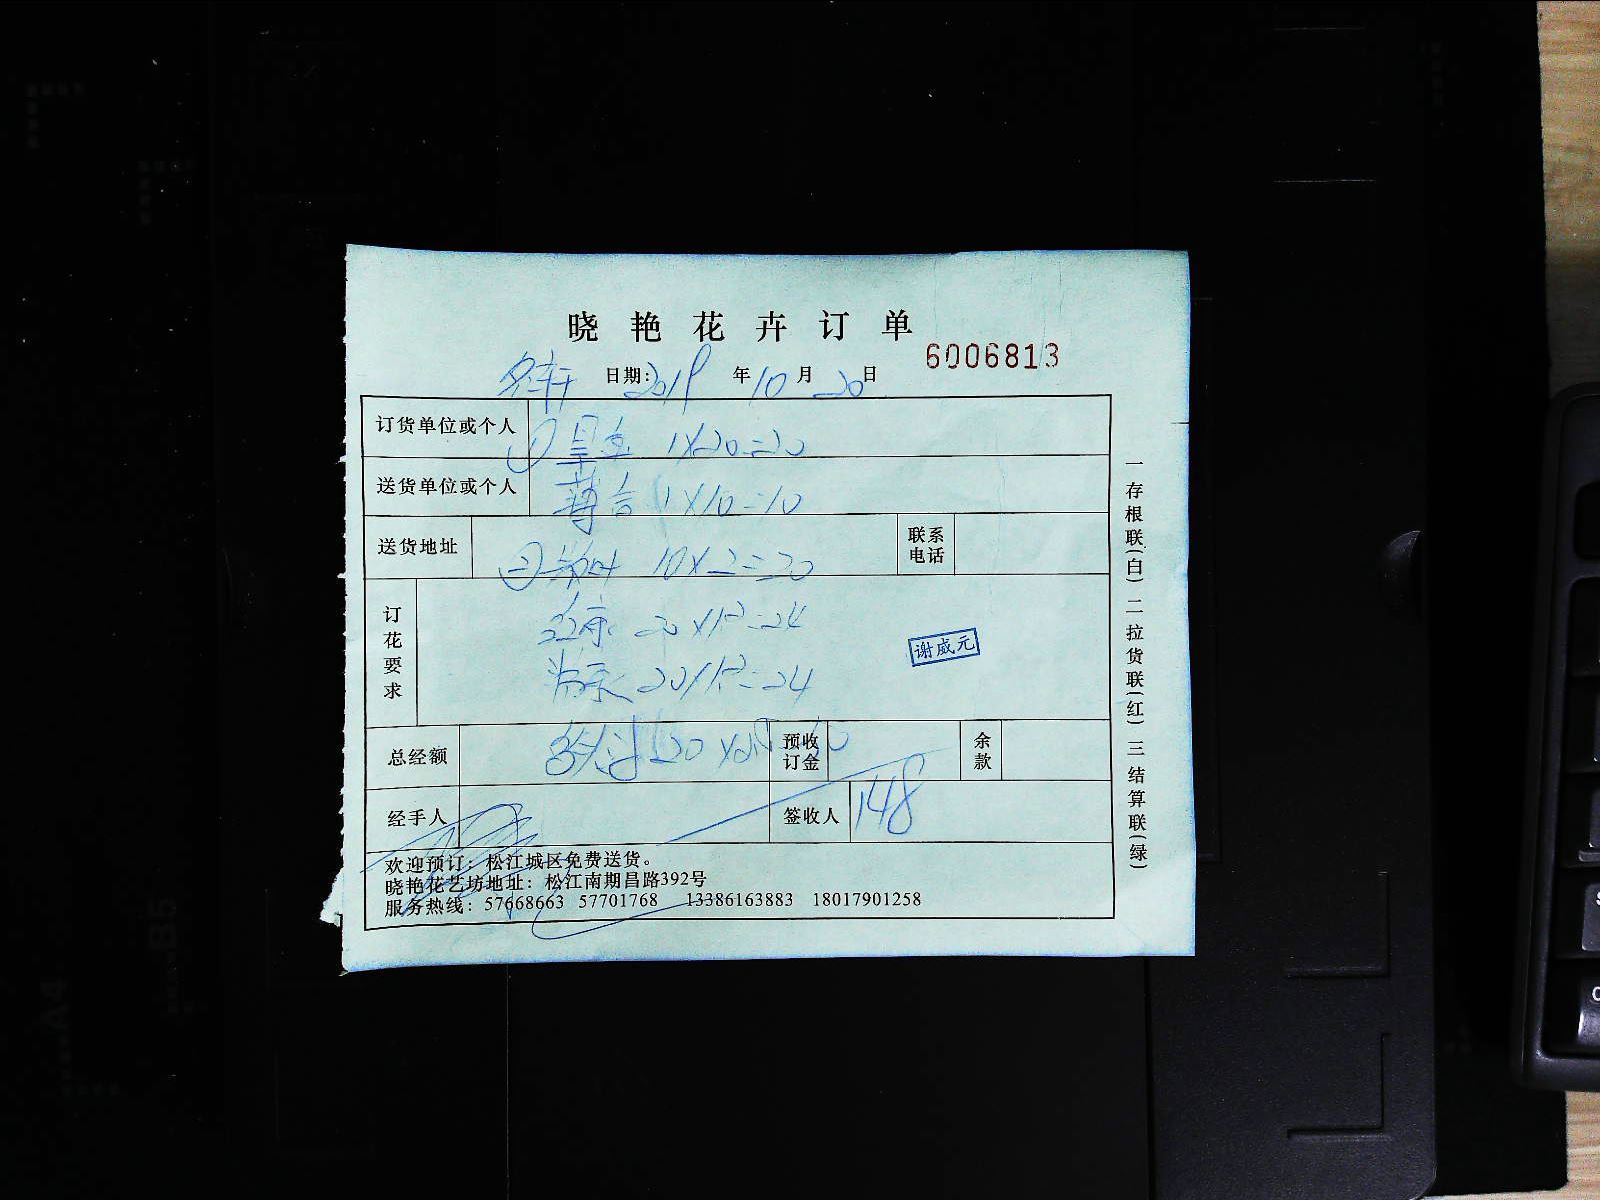 晓艳花卉订单
6006813
日期: 2019 年 10 月 20 日
订货单位或个人
1X20=20
送货单位或个人
1X10=10
送货地址
10X2=20
联系电话
订花要求
20X1.2=24
20X1.2=24
谢威元
总经额
120
预收订金
余款
经手人
签收人 148
欢迎预订:松江城区免费送货。
晓艳花艺坊地址:松江南期昌路392号
服务热线:57668663 57701768 13386163883 18017901258
一存根联(白) 二拉货联(红) 三结算联(绿)
B5
A4